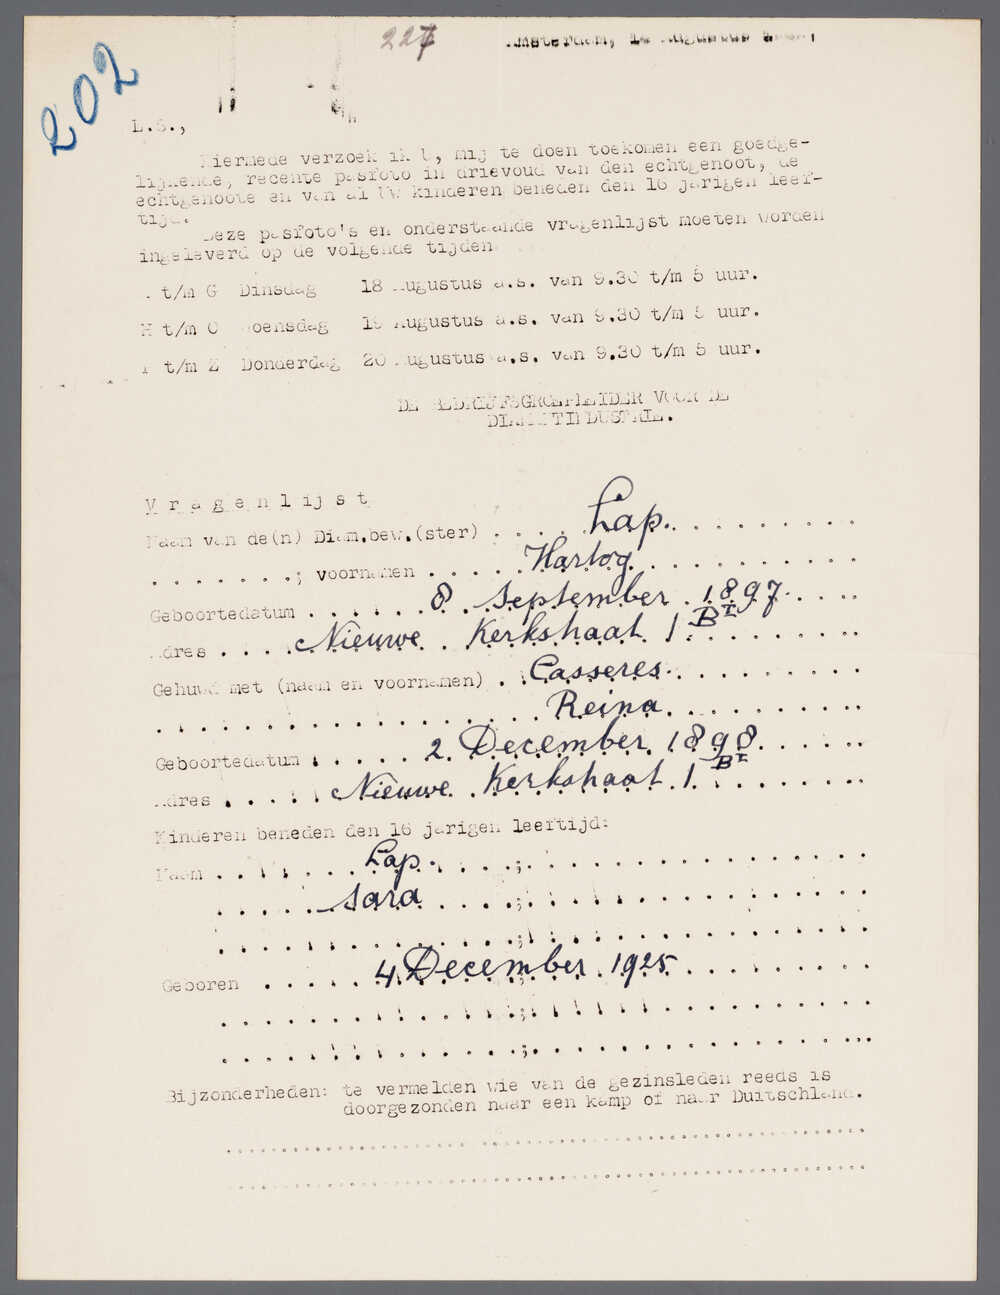 202
227
Amsterdam, Augustus
L.S.,
Hiermede verzoek ik U, mij te doen toekomen een goedge-
lijkende, recente pasfoto in drievoud van den echtgenoot, de
echtgenoote en van al Uw kinderen beneden den 16 jarigen leef-
tijd.
Deze pasfoto's en onderstaande vragenlijst moeten worden
ingeleverd op de volgende tijden
t/m G Dinsdag 18 Augustus a.s. van 9.30 t/m 5 uur.
H t/m O Woensdag 19 Augustus a.s. van 9.30 t/m 5 uur.
P t/m Z Donderdag 20 Augustus a.s. van 9.30 t/m 5 uur.
DE BEDRIJFSGROEPLEIDER VOOR DE
DIAMANTINDUSTRIE.
Vragenlijst
Naam van de(n) Diam.bew.(ster) . . . . Lap. . . . . . . . . .
. . . . . . .; voornamen . . . . . Hartog . . . . . . . . . .
Geboortedatum . . . . . . 8 September 1897. . . . .
Adres . . . . Nieuwe Kerkstraat 1 BI . . . . . . . .
Gehuwd met (naam en voornamen) . . Casseres. . . . . . . . .
. . . . . . . . . . . . . . . . . . Reina . . . . . . . . . .
Geboortedatum . . . . . 2 December 1898 . . . . . .
Adres . . . . . Nieuwe Kerkstraat 1 BI . . . . . . .
Kinderen beneden den 16 jarigen leeftijd:
Naam . . . . . . . Lap. . . . . ; . . . . . . . . . . . . . . . .
. . . . . Sara . . . . . ; . . . . . . . . . . . . . . . .
. . . . . . . . . . . . . . ; . . . . . . . . . . . . . . . .
Geboren . . . . . 4 December 1925 . . . . . . . . .
. . . . . . . . . . . . . . ; . . . . . . . . . . . . . . . .
. . . . . . . . . . . . . . ; . . . . . . . . . . . . . . . .
Bijzonderheden: te vermelden wie van de gezinsleden reeds is
doorgezonden naar een kamp of naar Duitschland.
................................................
................................................